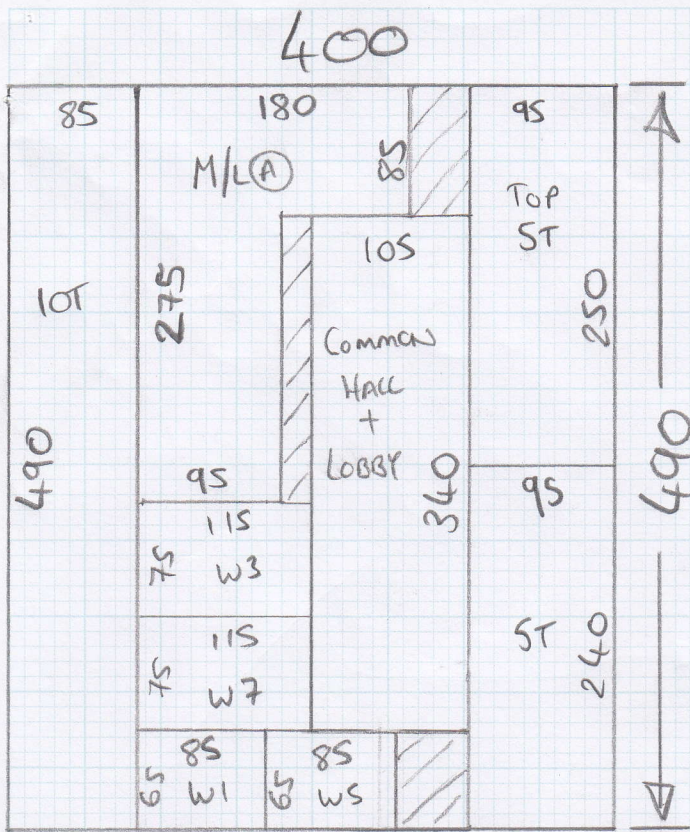 400
85
180
95
M/L A
85
TOP
5T
105
10T
275
250
COMMON
HALL
+
LOBBY
490
95
340
95
490
115
75 W3
5T
240
115
75 W7
85
65 W1
85
65 W5